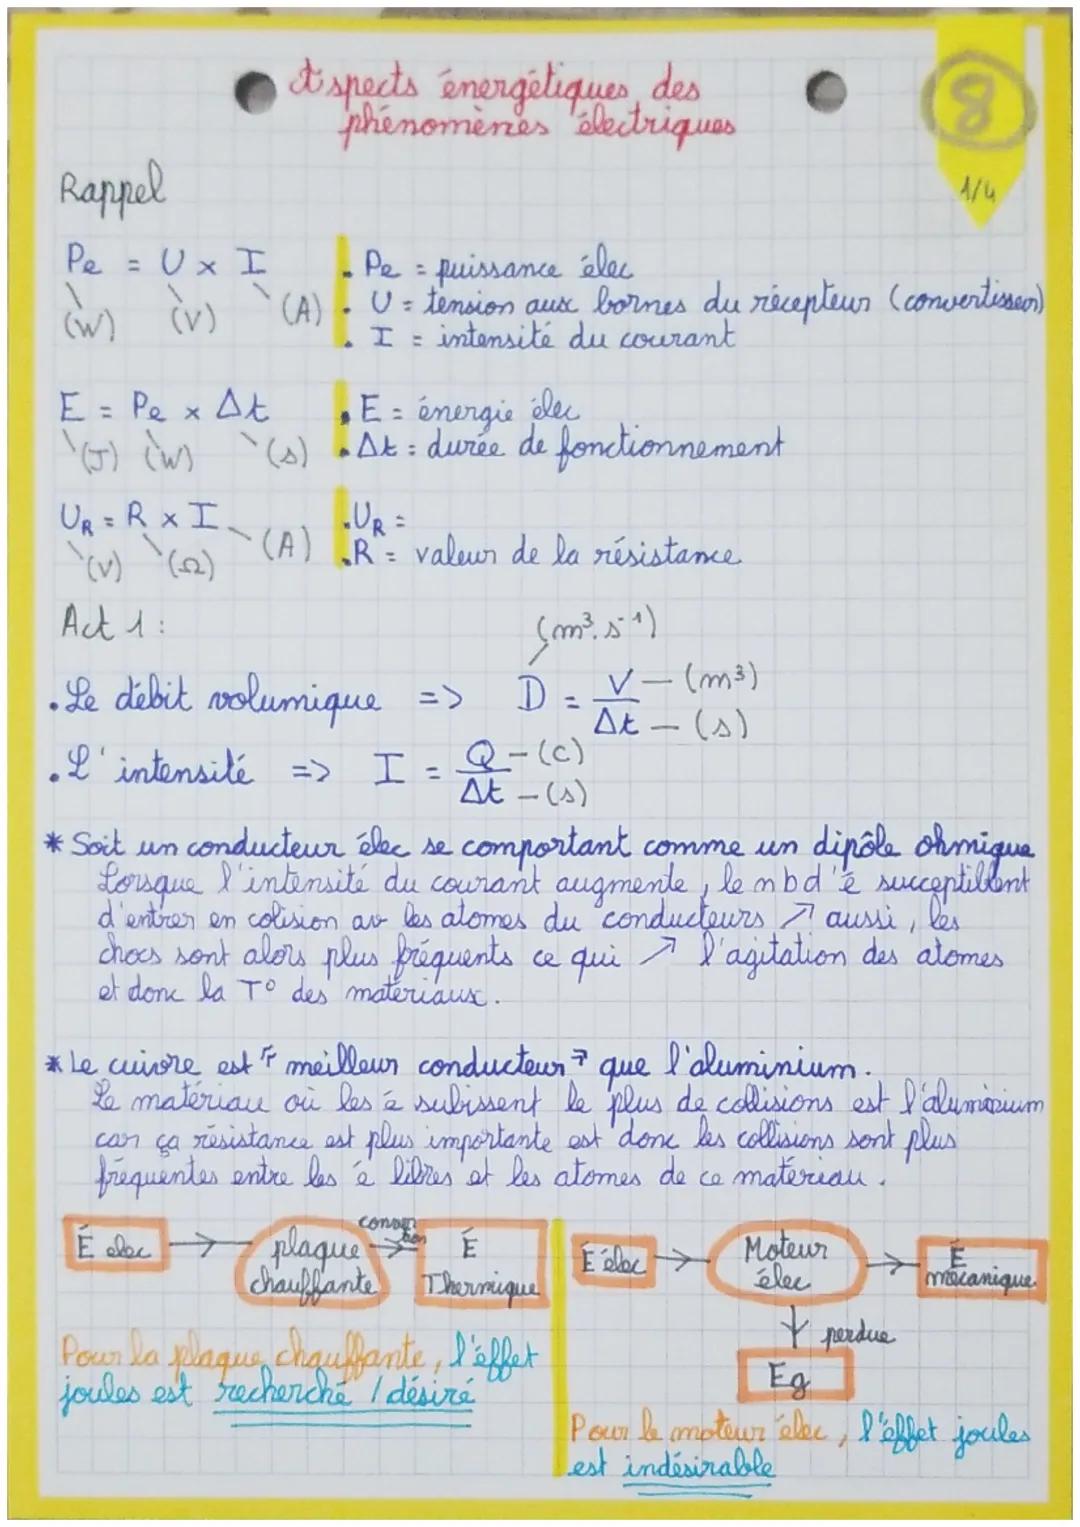 Aspects énergétiques des
phénomènes électriques
8
1/4
Rappel
Pe = U x I
(W) (V) (A)
. Pe = puissance élec
. U = tension aux bornes du récepteur (convertisseur)
. I = intensité du courant
E = Pe x Δt
(J) (W) (s)
. E = énergie élec
. Δt = durée de fonctionnement
UR = R x I
(V) (Ω) (A)
. UR =
. R = valeur de la résistance
Act 1 :
(m³.s-¹)
. Le débit volumique => D = V/Δt - (m³) - (s)
. L'intensité => I = Q/Δt - (C) - (s)
* Soit un conducteur élec se comportant comme un dipôle ohmique
Lorsque l'intensité du courant augmente, le nb d'é succeptiblent
d'entrer en colision av les atomes du conducteurs ↗ aussi, les
chocs sont alors plus fréquents ce qui ↗ l'agitation des atomes
et donc la T° des matériaux.
* Le cuivre est " meilleur conducteur " que l'aluminium.
Le matériau où les é subissent le plus de collisions est l'aluminium
car ça résistance est plus importante est donc les collisions sont plus
fréquentes entre les é libres et les atomes de ce matériau.
É elec → plaque chauffante → É Thermique
É élec → Moteur élec → É mécanique
↓ perdue
Eg
Pour la plaque chauffante, l'effet
joules est recherché / désiré
Pour le moteur élec, l'effet joules
est indésirable